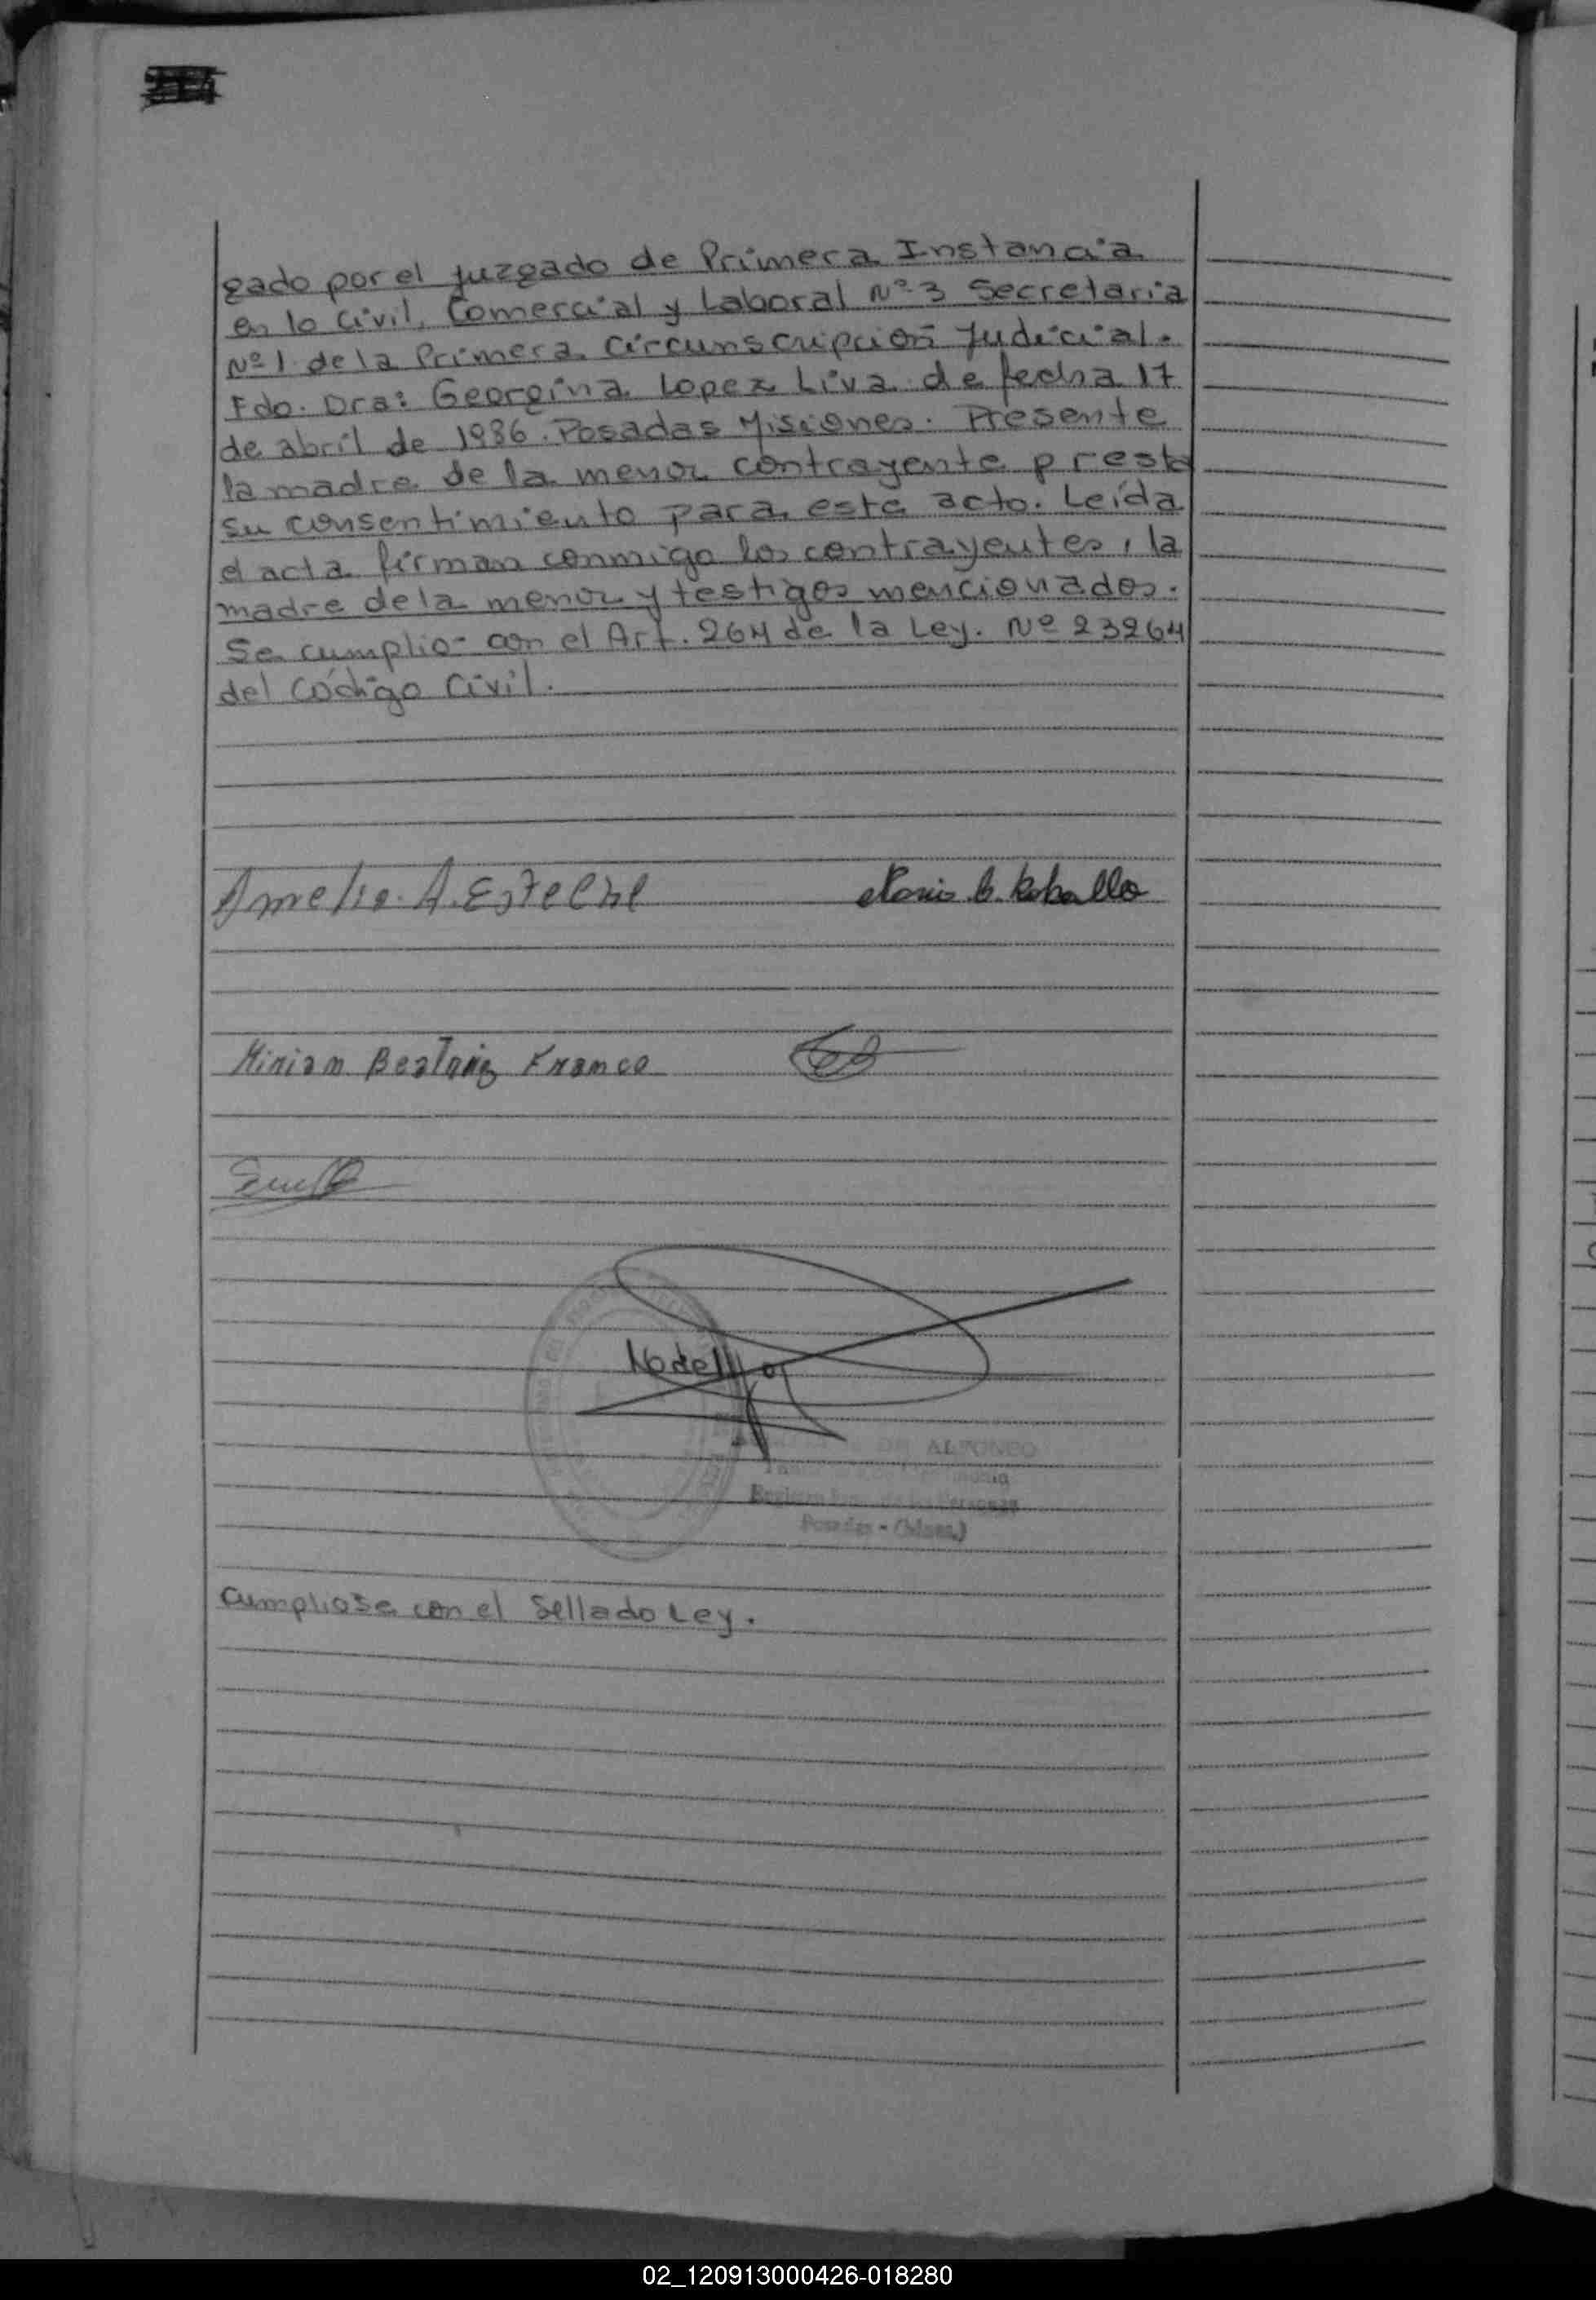 gado por el Juzgado de Primera Instancia
en lo Civil, Comercial y Laboral Nº 3 Secretaria
Nº 1 de la Primera Circunscripción Judicial.
Fdo. Dra: Georgina Lopez Liva de fecha 17
de abril de 1986. Posadas Misiones. Presente
la madre de la menor contrayente presta
su consentimiento para este acto. Leída
el acta firman conmigo los contrayentes, la
madre de la menor y testigos mencionados.
Se cumplio- con el Art. 264 de la Ley. Nº 23264
del Código Civil.
Amelio. A. Esteche
Miriam Beatriz Franco
DE ALFONSO
Posadas - (Mnes.)
Cumpliose con el Sellado Ley.
02_120913000426-018280